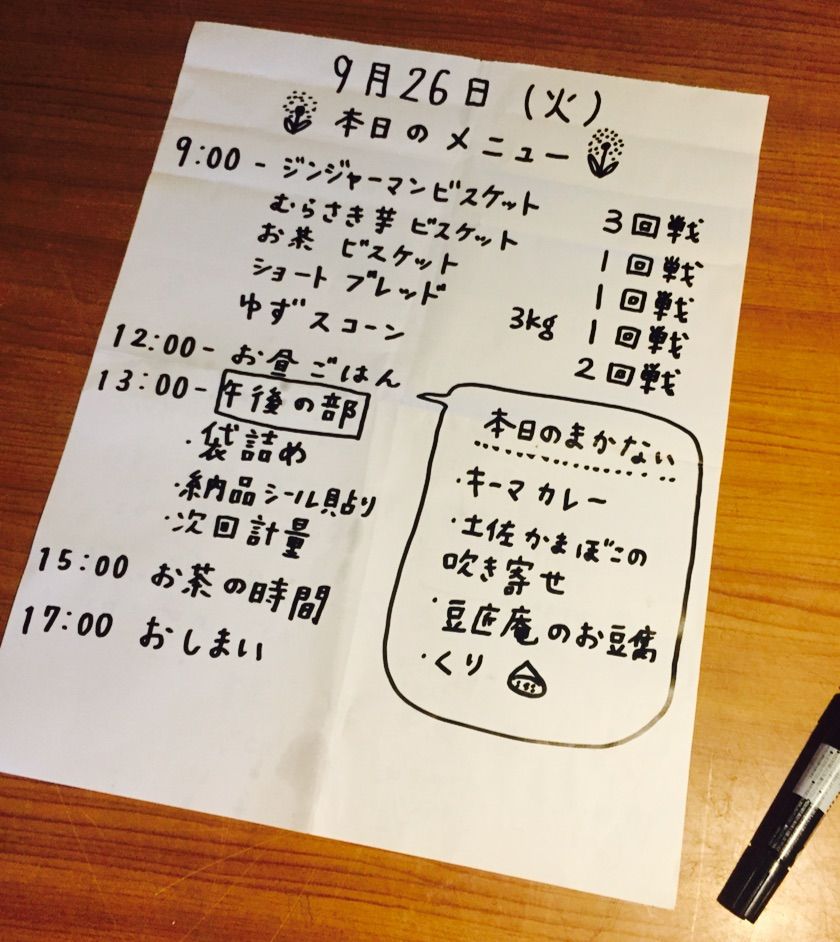 9月26日（火）
本日のメニュー
9:00 - ジンジャーマンビスケット 3回戦
むらさき芋 ビスケット 1回戦
お茶 ビスケット 1回戦
ショートブレッド 3kg 1回戦
ゆずスコーン 2回戦
12:00 - お昼ごはん
13:00 - 午後の部
・袋詰め
・納品シール貼り
・次回計量
15:00 お茶の時間
17:00 おしまい
本日のまかない
・キーマカレー
・土佐かまぼこの
吹き寄せ
・豆匠庵のお豆腐
・くり